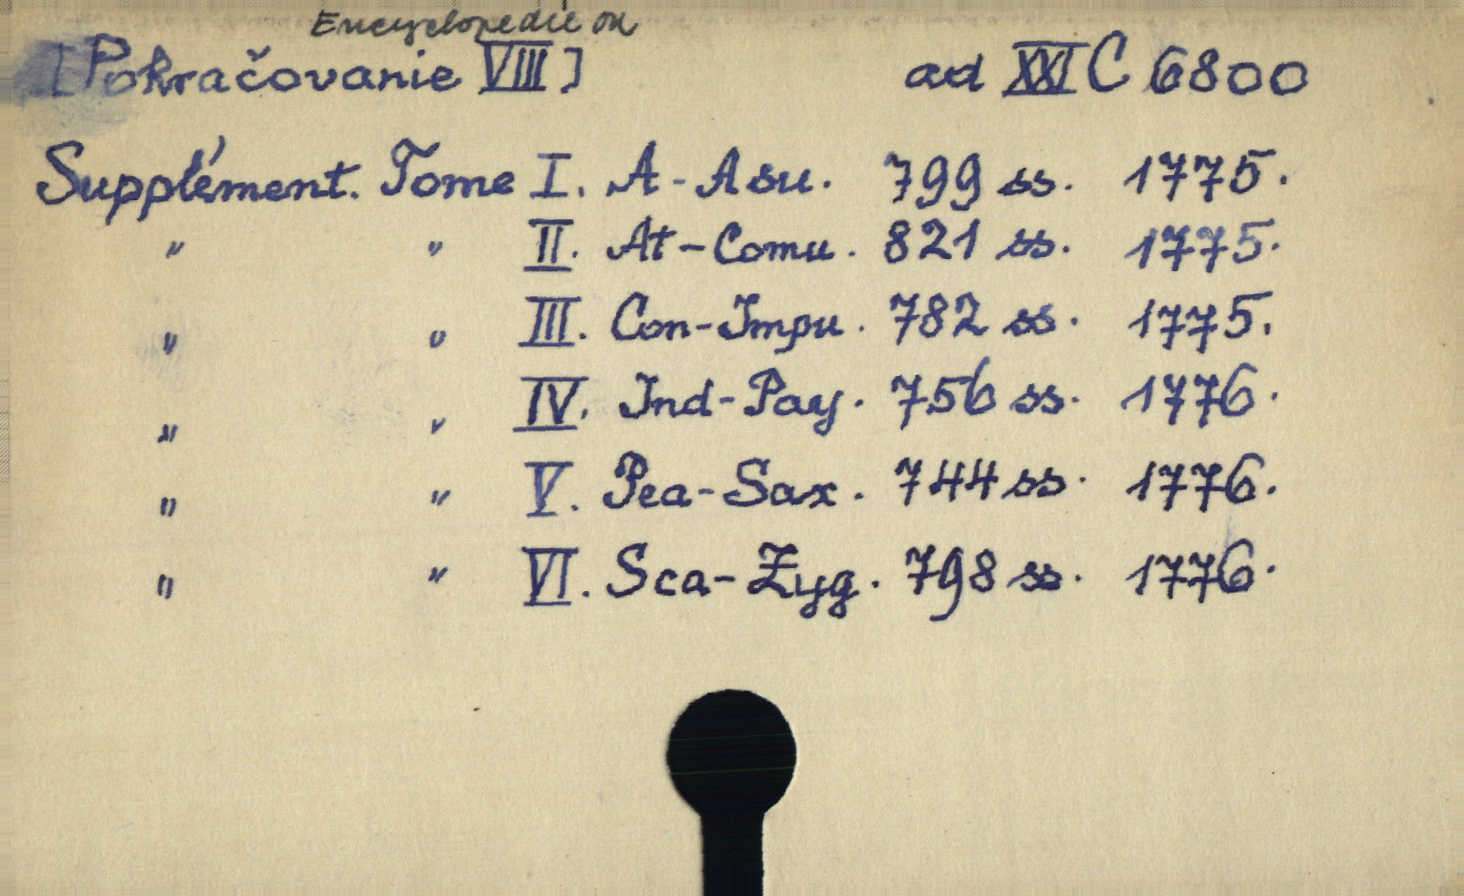 Encyclopedie ou
[Pokračovanie VIII] ad XXI C 6800
Supplément. Tome I. A-Asu. 799 ss. 1775.
" " II. At-Comu. 821 ss. 1775.
" " III. Con-Impu. 782 ss. 1775.
" " IV. Ind-Pay. 756 ss. 1776.
" " V. Pea-Sax. 744 ss. 1776.
" " VI. Sca-Zyg. 798 ss. 1776.